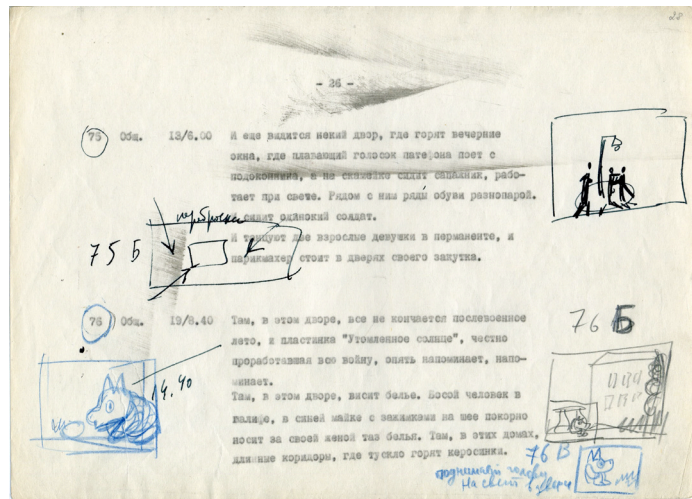 28
- 26 -
75 Общ. 13/6.00 И еще видится некий двор, где горят вечерние
окна, где плавающий голосок патефона поет с
подоконника, а на скамейке сидит сапожник, рабо-
тает при свете. Рядом с ним ряды обуви разнопарой.
сидит одинокий солдат.
И танцуют две взрослые девушки в перманенте, и
парикмахер стоит в дверях своего закутка.
75 Б
76 Общ. 19/8.40 Там, в этом дворе, все не кончается послевоенное
лето, и пластинка "Утомленное солнце", честно
проработавшая всю войну, опять напоминает, напо-
минает.
Там, в этом дворе, висит белье. Босой человек в
галифе, в синей майке с зажимками на шее покорно
носит за своей женой таз белья. Там, в этих домах,
длинные коридоры, где тускло горят керосинки.
14.40
76 Б
76 В
поднимает голову
На свет в двери